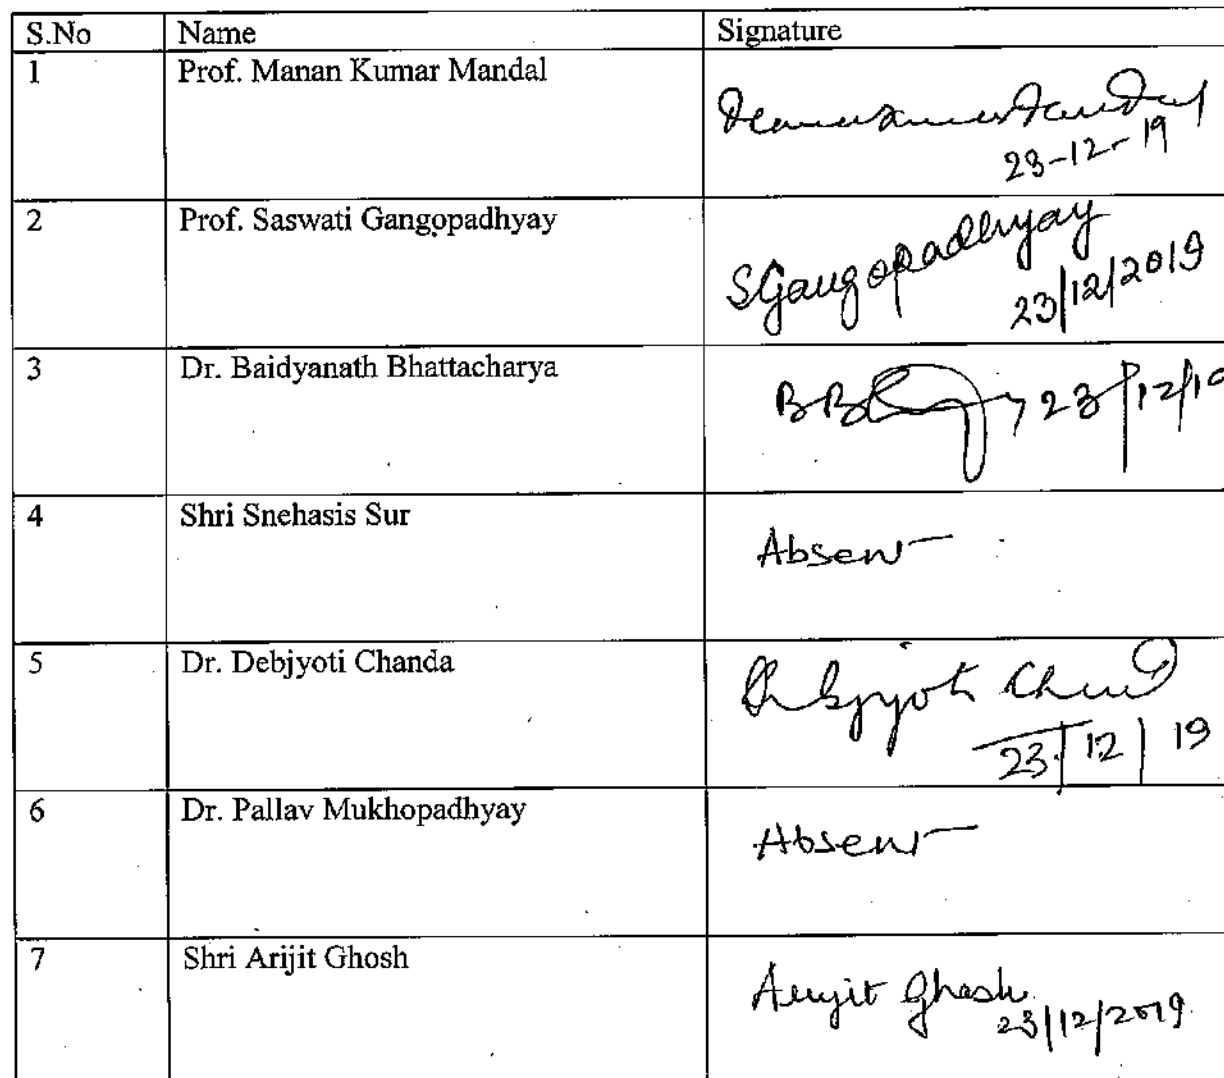 S.No Name Signature
1 Prof. Manan Kumar Mandal
23-12-19
2 Prof. Saswati Gangopadhyay SGangopadhyay
23/12/2019
3 Dr. Baidyanath Bhattacharya 23/12/19
4 Shri Snehasis Sur Absent
5 Dr. Debjyoti Chanda Debjyoti Chanda
23/12/19
6 Dr. Pallav Mukhopadhyay Absent
7 Shri Arijit Ghosh Arijit Ghosh
23/12/2019